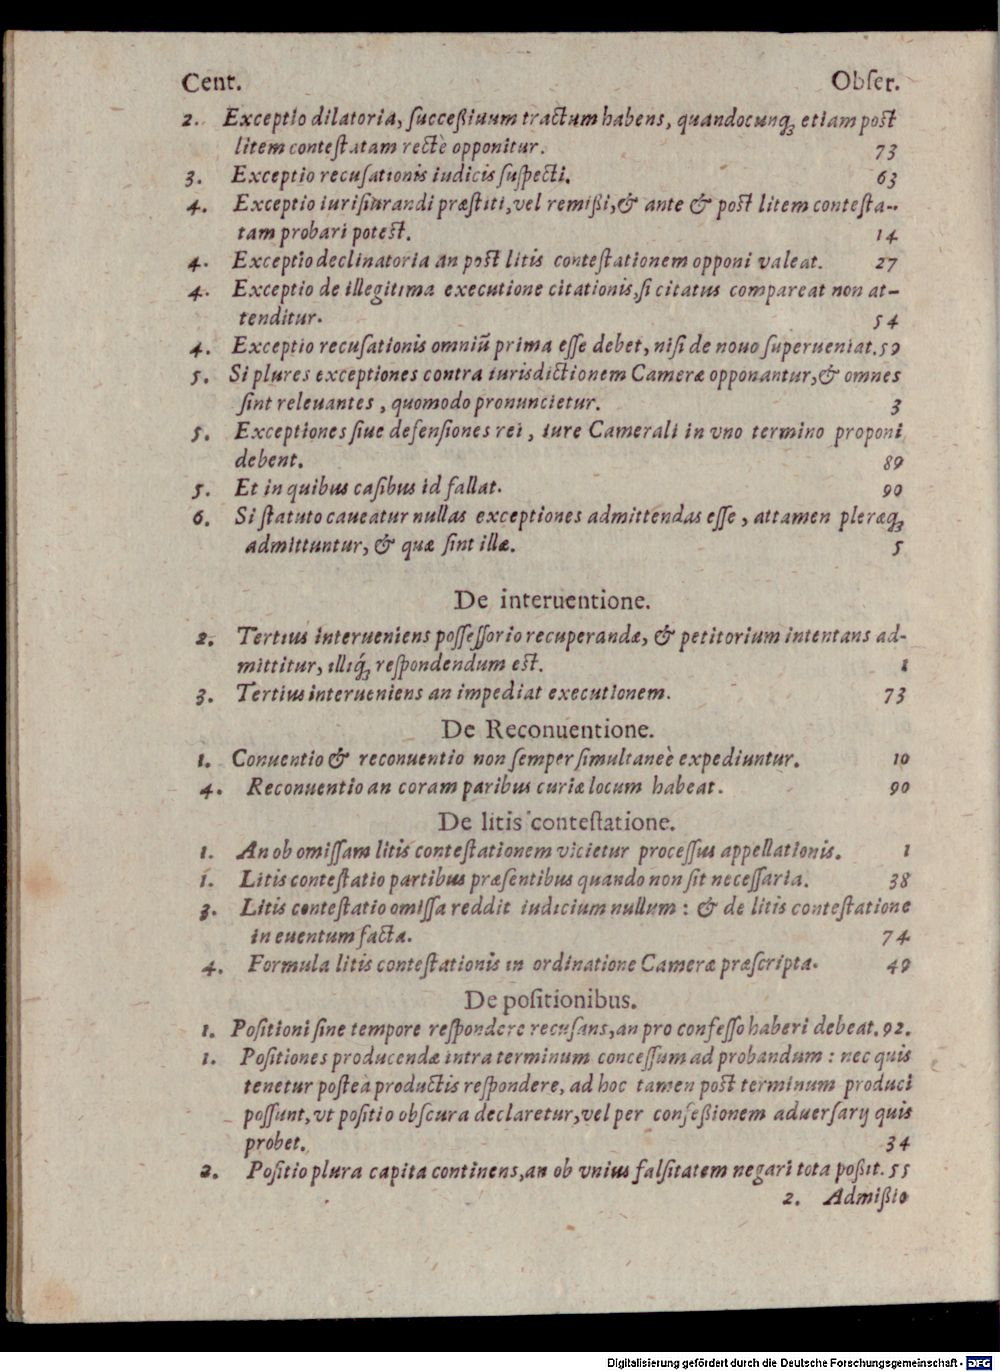 Cent. Obſer.
2. Exceptio dilatoria, ſucceßiuum tractum habens, quandocunq; etiam poſt
litem conteſtatam rectè opponitur. 73
3. Exceptio recuſationis iudicis ſuſpecti. 63
4. Exceptio iuriſiurandi præſtiti, vel remißi, & ante & poſt litem conteſta-
tam probari poteſt. 14
4. Exceptio declinatoria an poſt litis conteſtationem opponi valeat. 27
4. Exceptio de illegitima executione citationis, ſi citatus compareat non at-
tenditur. 54
4. Exceptio recuſationis omniū prima eſſe debet, niſi de nouo ſuperueniat. 59
5. Si plures exceptiones contra iurisdictionem Cameræ opponantur, & omnes
ſint releuantes, quomodo pronuncietur. 3
5. Exceptiones ſiue defenſiones rei, iure Camerali in vno termino proponi
debent. 89
5. Et in quibus caſibus id fallat. 90
6. Si ſtatuto caueatur nullas exceptiones admittendas eſſe, attamen pleræq;
admittuntur, & quæ ſint illæ. 5
De interuentione.
2. Tertius interueniens poſſeſſorio recuperandæ, & petitorium intentans ad-
mittitur, illiq́; reſpondendum eſt. 1
3. Tertius interueniens an impediat executionem. 73
De Reconuentione.
1. Conuentio & reconuentio non ſemper ſimultaneè expediuntur. 10
4. Reconuentio an coram paribus curiæ locum habeat. 90
De litis conteſtatione.
1. An ob omiſſam litis conteſtationem vicietur proceſſus appellationis. 1
1. Litis conteſtatio partibus præſentibus quando non ſit neceſſaria. 38
3. Litis conteſtatio omiſſa reddit iudicium nullum: & de litis conteſtatione
in euentum facta. 74
4. Formula litis conteſtationis in ordinatione Cameræ præſcripta. 49
De poſitionibus.
1. Poſitioni ſine tempore reſpondere recuſans, an pro confeſſo haberi debeat. 92.
1. Poſitiones producendæ intra terminum conceſſum ad probandum: nec quis
tenetur poſtea productis reſpondere, ad hoc tamen poſt terminum produci
poſſunt, vt poſitio obſcura declaretur, vel per confeßionem aduerſarij quis
probet. 34
2. Poſitio plura capita continens, an ob vnius falſitatem negari tota poßit. 55
2. Admißio
Digitalisierung gefördert durch die Deutsche Forschungsgemeinschaft - DFG